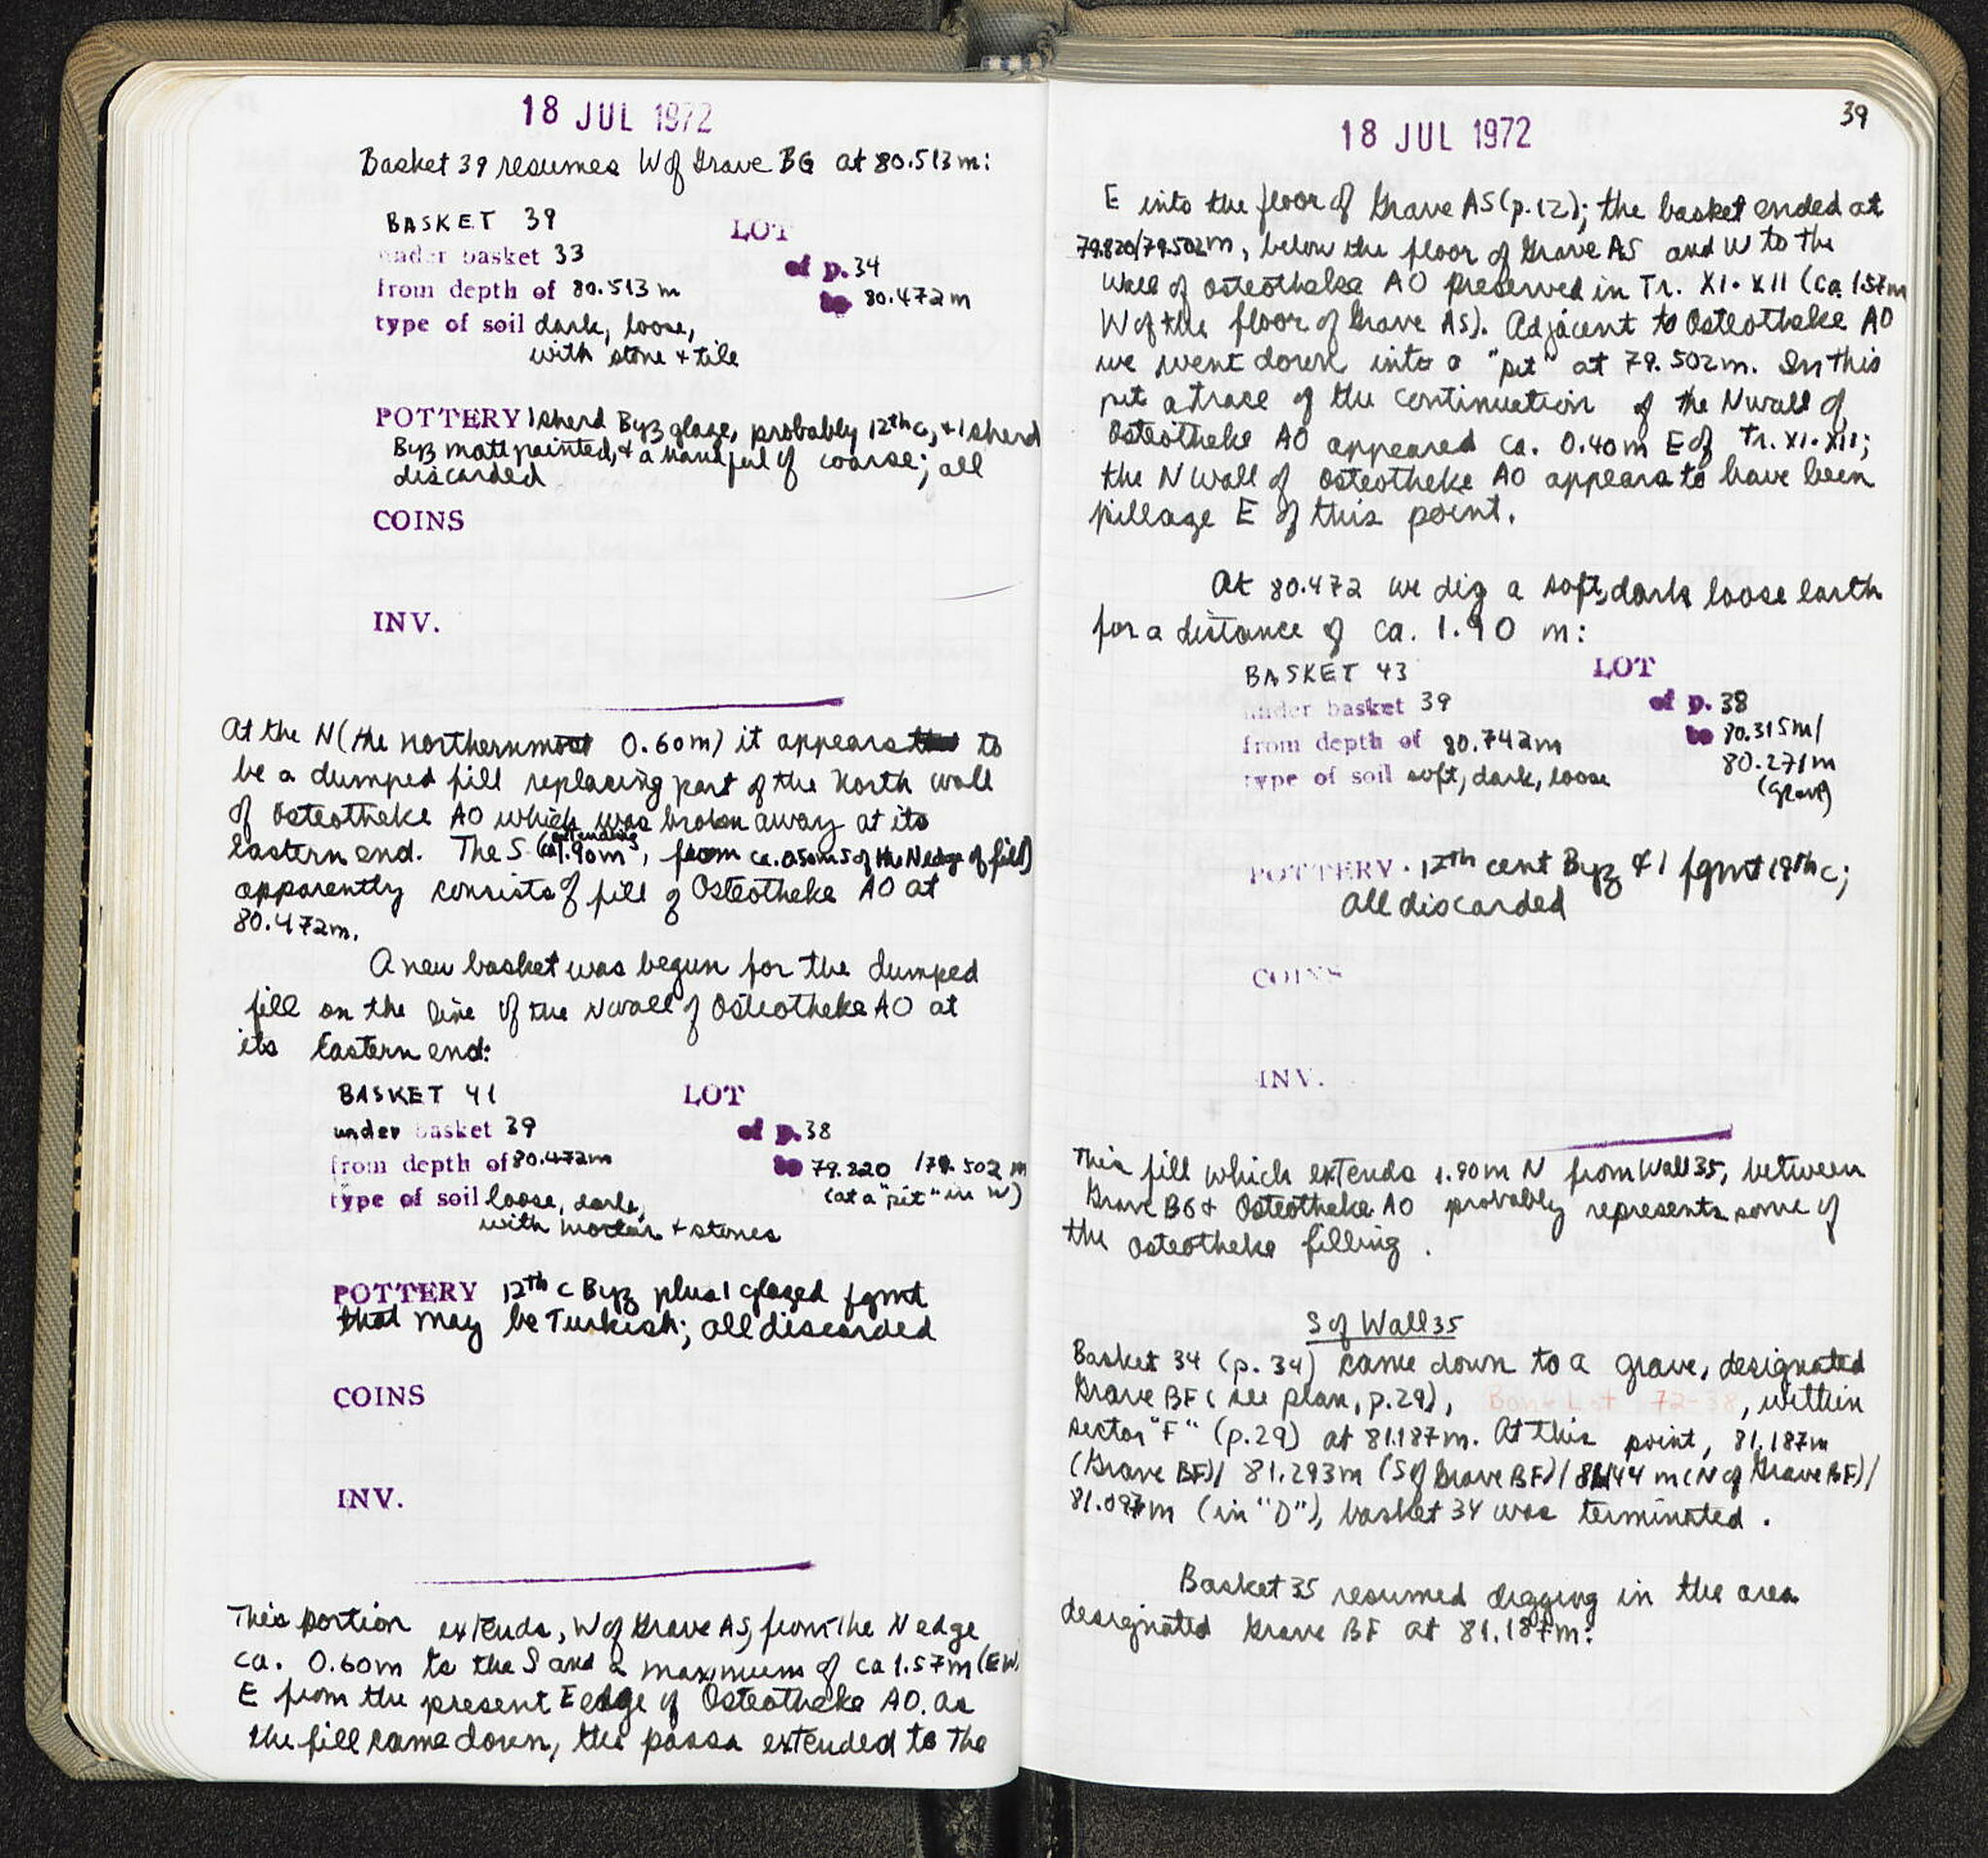 18 JUL 1972
Basket 39 resumes W of Grave BG at 80.513m:
BASKET 39
LOT
under basket 33
of p. 34
from depth of 80.513 m
to 80.472 m
type of soil dark, loose,
with stone + tile
POTTERY 1 sherd Byz glaze, probably 12th c, + 1 sherd
Byz matt painted, + a handful of coarse; all
discarded
COINS
INV.
At the N (the northernmost 0.60m) it appears to
be a dumped fill replacing part of the North wall
of Osteotheke AO which was broken away at its
Eastern end. The S (ca 1.90m extending, from ca. 0.50m S of the N edge of fill)
apparently consists of fill of Osteotheke AO at
80.472m.
A new basket was begun for the dumped
fill on the line of the N wall of Osteotheke AO at
its Eastern end:
BASKET 41
LOT
under basket 39
of p. 38
from depth of 80.472m
to 79.820 / 79.502 m
(at a "pit" in W)
type of soil loose, dark,
with mortar + stones
POTTERY 12th c Byz plus 1 glazed fgmt
that may be Turkish; all discarded
COINS
INV.
This portion extends, W of Grave AS, from the N edge
ca. 0.60m to the S and a maximum of ca 1.57m (EW)
E from the present E edge of Osteotheke AO. As
the fill came down, the passa extended to the
39
18 JUL 1972
E into the floor of Grave AS (p.12); the basket ended at
79.820/79.502m, below the floor of Grave AS and W to the
Wall of Osteotheke AO preserved in Tr. XI-XII (ca. 1.57m
W of the floor of Grave AS). Adjacent to Osteotheke AO
we went down into a "pit" at 79.502m. In this
pit a trace of the continuation of the N wall of
Osteotheke AO appeared ca. 0.40m E of Tr. XI-XII;
the N wall of Osteotheke AO appears to have been
pillage E of this point.
At 80.472 we dig a soft, dark loose earth
for a distance of ca. 1.90 m:
BASKET 43
LOT
under basket 39
of p. 38
from depth of 80.742m
to 80.315m/
80.271m
(grave)
type of soil soft, dark, loose
POTTERY · 12th cent Byz & 1 fgmt 18th c;
all discarded
COINS
INV.
This fill which extends 1.90m N from Wall 35, between
Grave BG + Osteotheke AO probably represents some of
the osteotheke filling.
S of Wall 35
Basket 34 (p. 34) came down to a grave, designated
Grave BF (see plan, p.29), Bone Lot 72-38, within
sector "F" (p.29) at 81.187m. At this point, 81.187m
(Grave BF)/ 81.293m (S of Grave BF)/ 81.144 m (N of Grave BF)/
81.097m (in "D"), basket 34 was terminated.
Basket 35 resumed digging in the area
designated Grave BF at 81.187m: